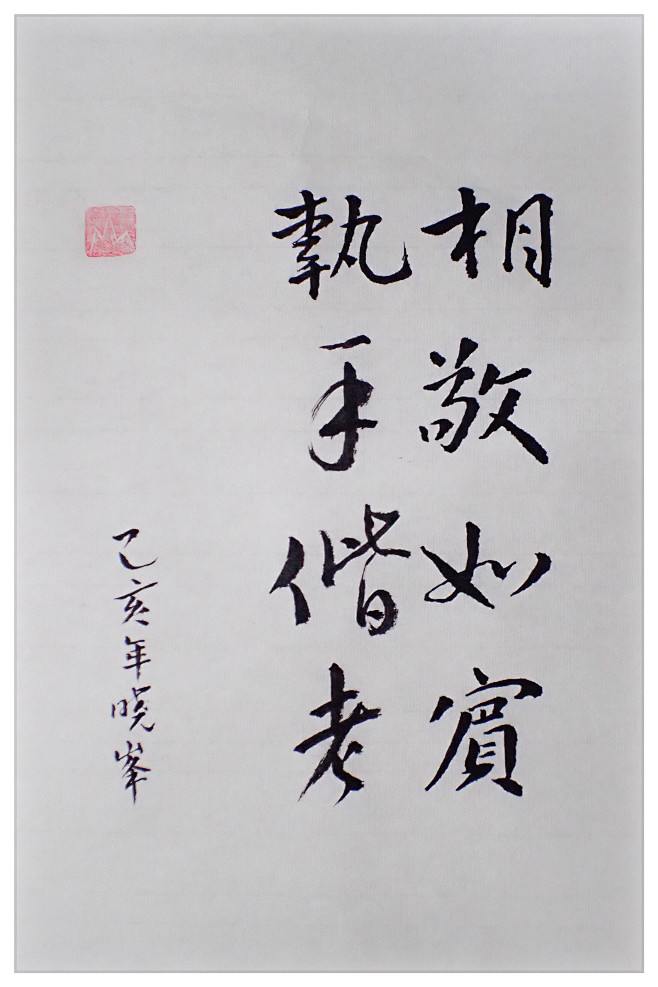 相敬如賓
執手偕老
己亥年晓峯